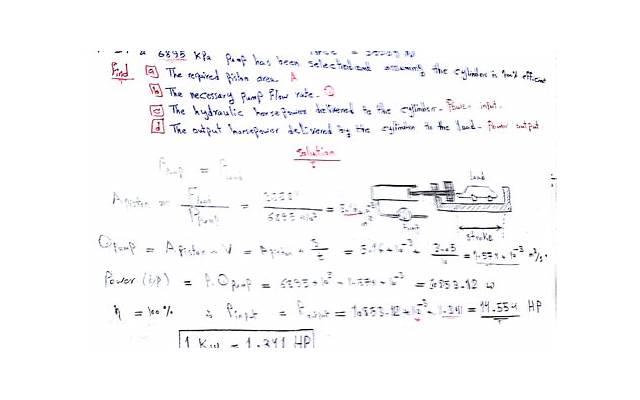 a 6895 KPa pump has been selected and assuming the cylinder is 100% efficient
Find a The required piston area. A
b The necessary pump flow rate. Q
c The hydraulic horsepower delivered to the cylinder. Power input.
d The output horsepower delivered by the cylinder to the load. Power output
Solution
F pump = F load
A piston = F load / P pump = / 6895 * 10³ =
load
Pump
stroke
Q pump = A piston * V = A piston * S/t = * 10⁻³ * 3.05/10 = 1.574 * 10⁻³ m³/s
Power (i/p) = P. Q pump = 6895 * 10³ * 1.574 * 10⁻³ = 10853.12 w
η = 100% ∴ P input = P output = 10853.12 * 10⁻³ * 1.341 = 14.554 HP
1 Kw = 1.341 HP